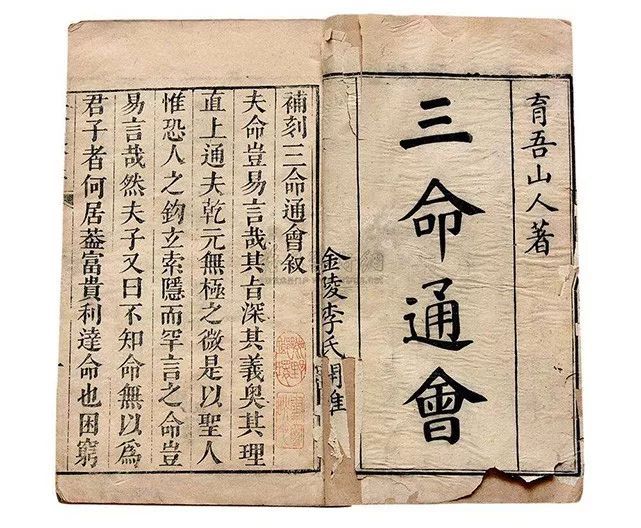 育吾山人著
三命通會
金陵李氏開雕
補刻三命通會叙
夫命豈易言哉其旨深其義奧其理
直上通夫乾元無極之微是以聖人
惟恐人之鈎玄索隱而罕言之命豈
易言哉然夫子又曰不知命無以爲
君子者何居葢富貴利達命也困窮